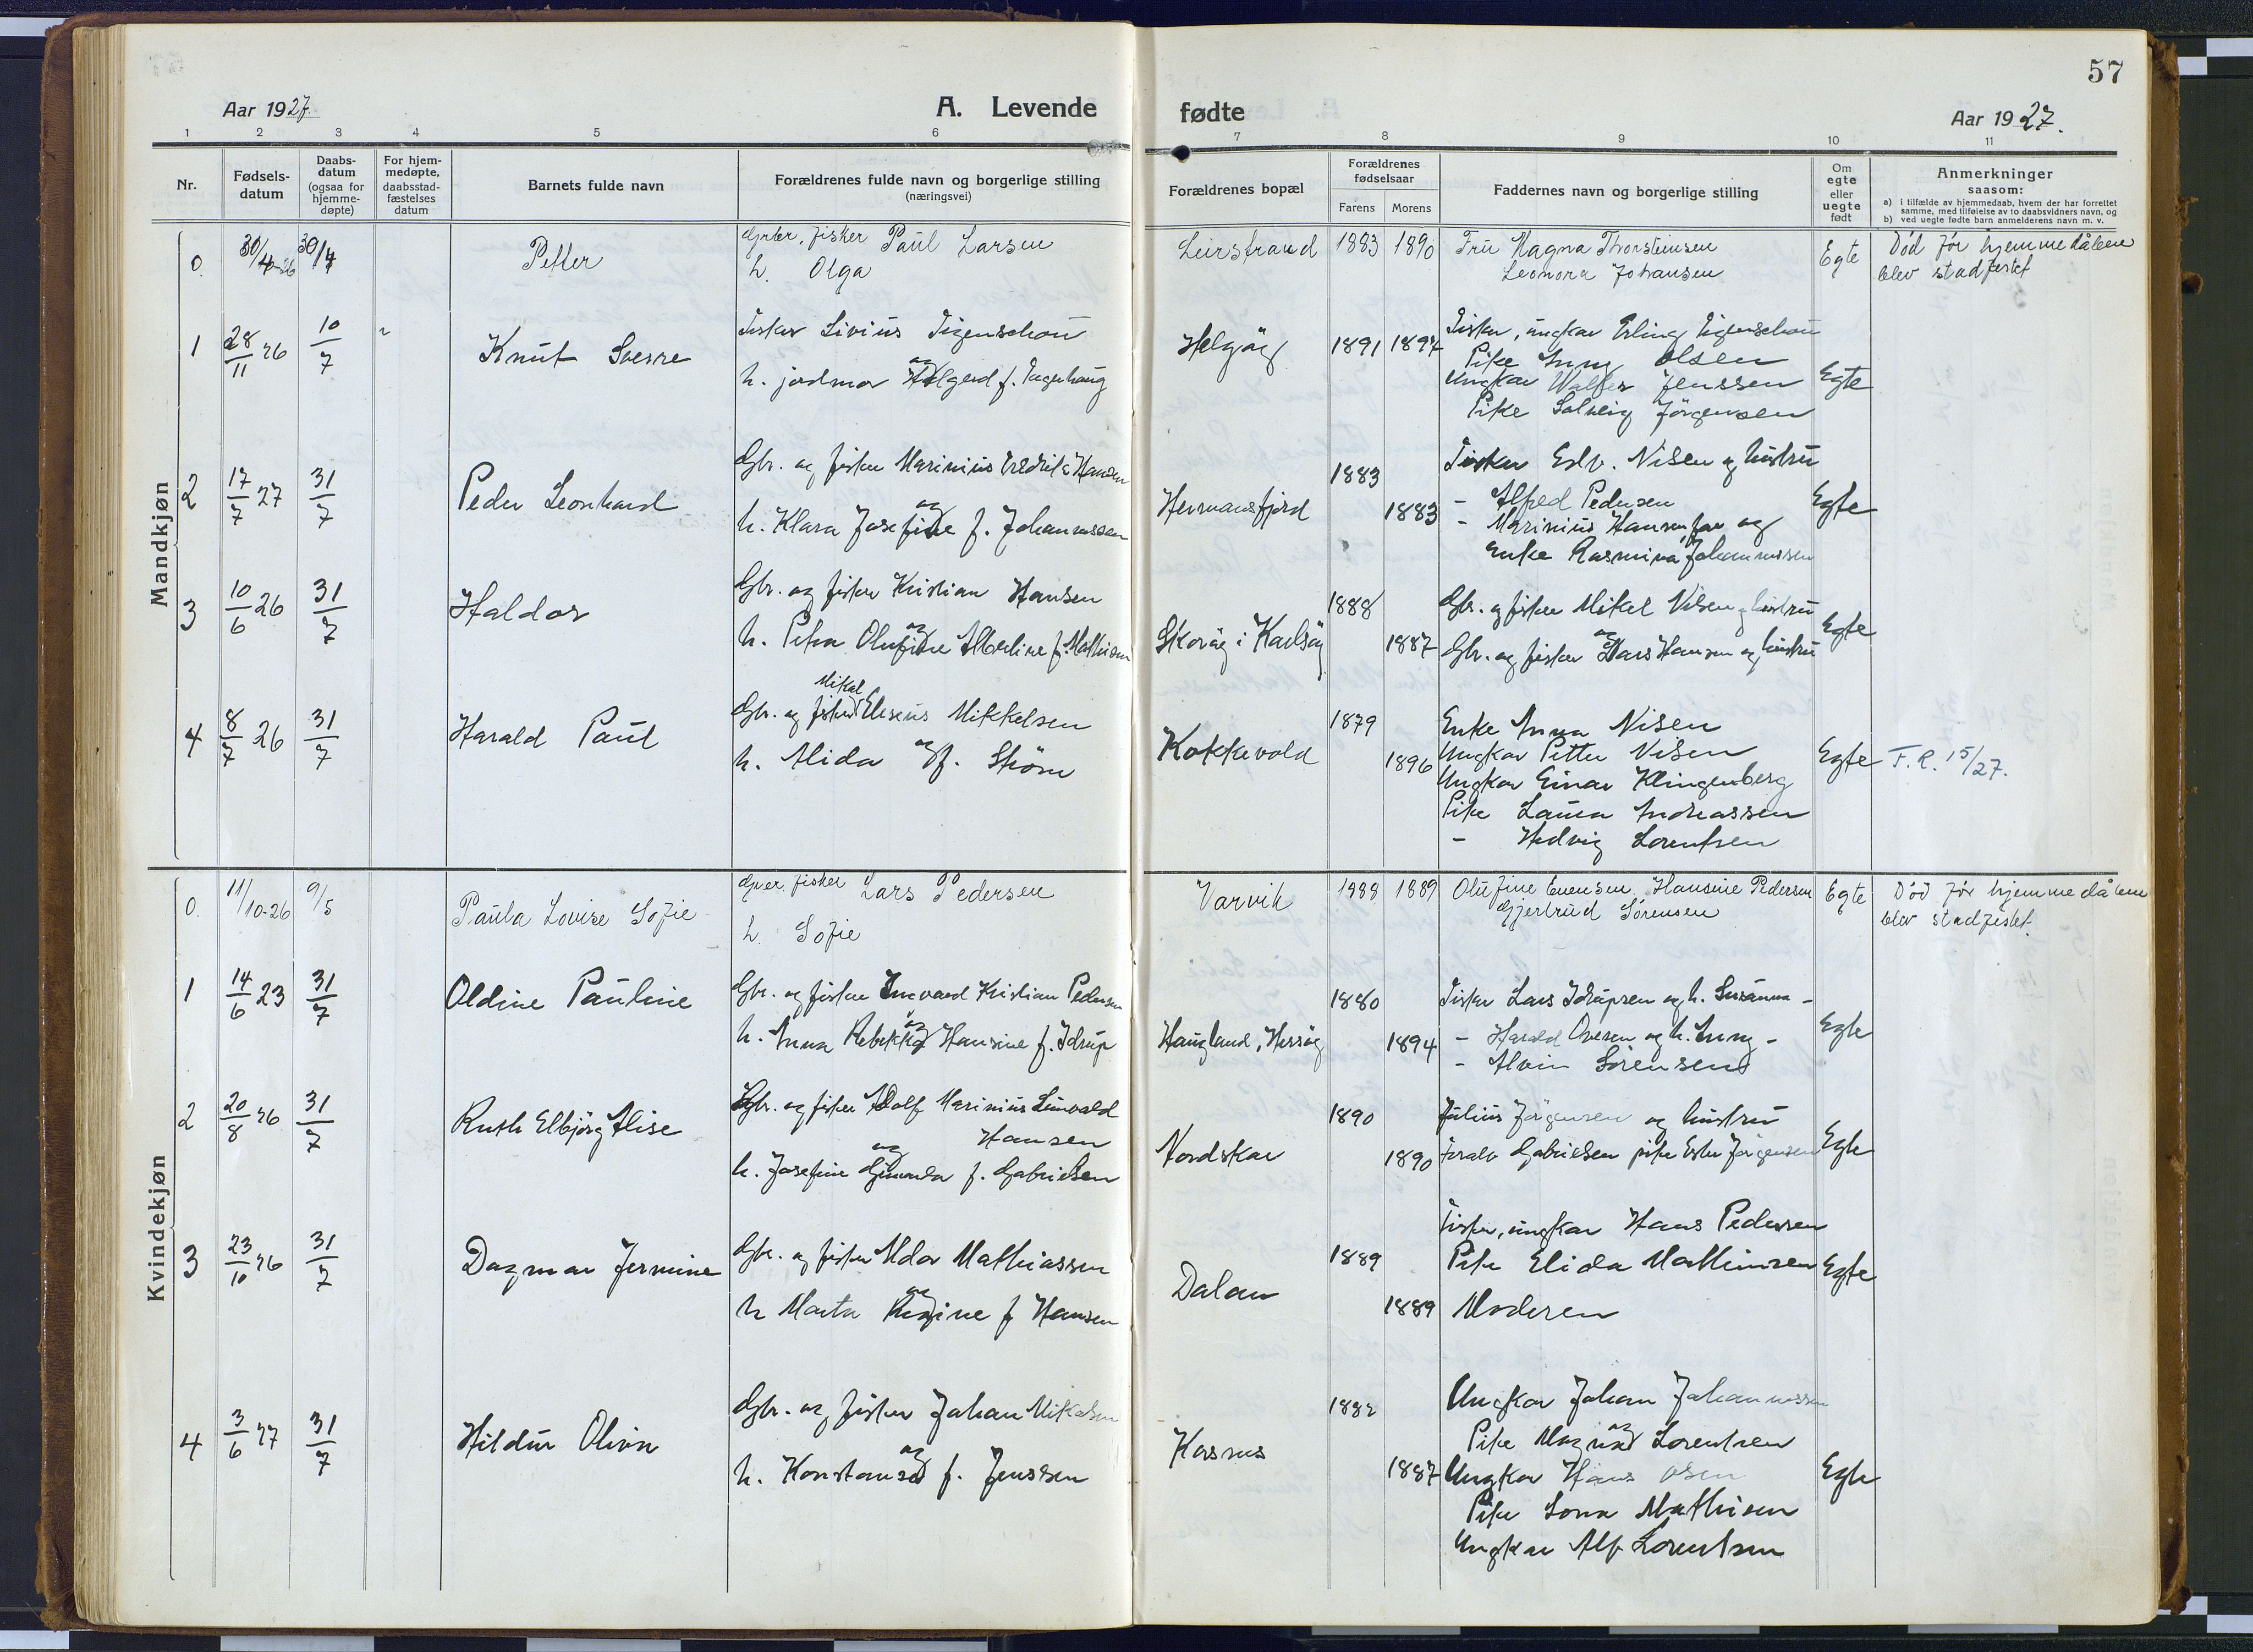 57
Aar 1927.
A. Levende
fødte
Aar 1927.
1 2 3 4 5 6 7 8 9 10 11
Nr.
Fødsels-
datum
Daabs-
datum
(ogsaa for
hjemme-
døpte)
For hjem-
medøpte,
daabsstad-
fæstelses
datum
Barnets fulde navn
Forældrenes fulde navn og borgerlige stilling
(næringsvei)
Forældrenes bopæl
Forældrenes
fødselsaar
Farens Morens
Faddernes navn og borgerlige stilling
Om
egte
eller
uegte
født
Anmerkninger
saasom:
a) i tilfælde av hjemmedaab, hvem der har forrettet
samme, med tilføielse av to daabsvidners navn, og
b) ved uegte fødte barn anmelderens navn m. v.
Mandkjøn
0. 30/4-26 30/4 Petter
fisker Paul Larsen
h. Olga
Leirstrand 1883 1890
Fru Magna Thorsteinsen
Leonora Johansen
Egte
Död för hjemmedåben
blev stadfestet
1 28/11 26 10/7 Knut Sverre
Fisker Livius Figenschou
og
h. jordmor f. Figenschou
Helgöy 1891 1894
Fisker, ungkar Erling Figenschou
Pike Olsen
Ungkar Jenssen
Pike Solveig Jörgensen
Egte
2 17/7 27 31/7 Peder Leonhard
Gbr. og fisker Marinius Fredrik Hansen
og
h. Klara Josefine f. Johannessen
Hermansfjord 1883 1883
Fisker Edv. Nilsen og hustru
- Alfred Pedersen
- Marinius Hansen, far og
Enke Rasmina Johannessen
Egte
3 10/6 26 31/7 Haldor
Gbr. og fisker Kristian Hansen
og
h. Petra Olufine Albertine f. Mathisen
Skoröy i Karlsöy 1888 1887
Gbr. og fisker Mikal Nilsen og hustru
og
Gbr. og fisker Lars Hansen og hustru
Egte
4 8/7 26 31/7 Harald Paul
Mikal
Gbr. og fisker Eliseus Mikkelsen
og
h. Alida f. Ström
Kokkevold 1879 1896
Enke Anna Nilsen
Ungkar Petter Nilsen
Ungkar Einar Klingenberg
Pike Laura Andreassen
- Hedvig Lorentsen
Egte
F. R. 15/27.
Kvindekjøn
0. 11/10-26 9/5 Paula Lovise Sofie
fisker Lars Pedersen
h. Sofie
Varvik 1888 1889
Olufine Evensen. Hansine Pedersen
Gjertrud Sörensen
Egte
Död för hjemmedåben
blev stadfestet.
1 14/6 23 31/7 Oldine Pauline
Gbr. og fisker Ingvard Kristian Pedersen
og
h. Anna Rebekka Hansine f. Idrup
Haugland, Hessöy 1880 1894
Fisker Lars Idrupsen og h. Susanna -
- Harald Ovesen og h. -
- Alvin Sörensen
Egte
2 20/8 26 31/7 Ruth Elbjörg Alise
Gbr. og fisker Adolf Marinius Leinvald
Hansen
og
h. Josefine f. Gabrielsen
Nordskar 1890 1890
Julius Jörgensen og hustru
Toralv Gabrielsen pike Ester Jörgensen
Egte
3 23/10 26 31/7 Dagmar Jermine
Gbr. og fisker Aldor Mathiassen
og
h Marta Regine f Hansen
Dalan 1889 1889
Fisker, ungkar Hans Pedersen
Pike Elida Mathiassen
Moderen
Egte
4 3/6 27 31/7 Hildur Olivia
Gbr. og fisker Johan Mikalsen
og
h. Konstanse f. Jenssen
Kasnes 1882 1887
Ungkar Johan Johannessen
og
Pike Magna Lorentsen
Ungkar Hans Olsen
Pike Lona Mathisen
Ungkar Alf Lorentsen
Egte